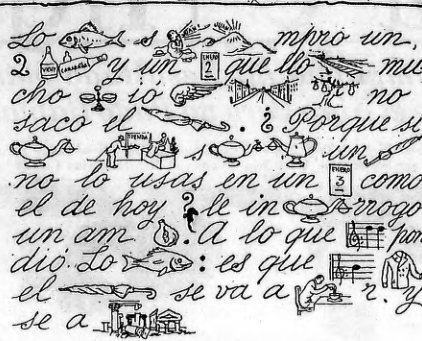 Lo s mpró un,
2 VINO CAZALLA y un ENERO 2 que llo mu
cho ió no
sacó el . ¿ Porque si
TIENDA s un
no lo usas en un ENERO 3 como
el de hoy ? le in rrogo
un am . A lo que pon
dió. Lo : es que
el se va a r. y
se a